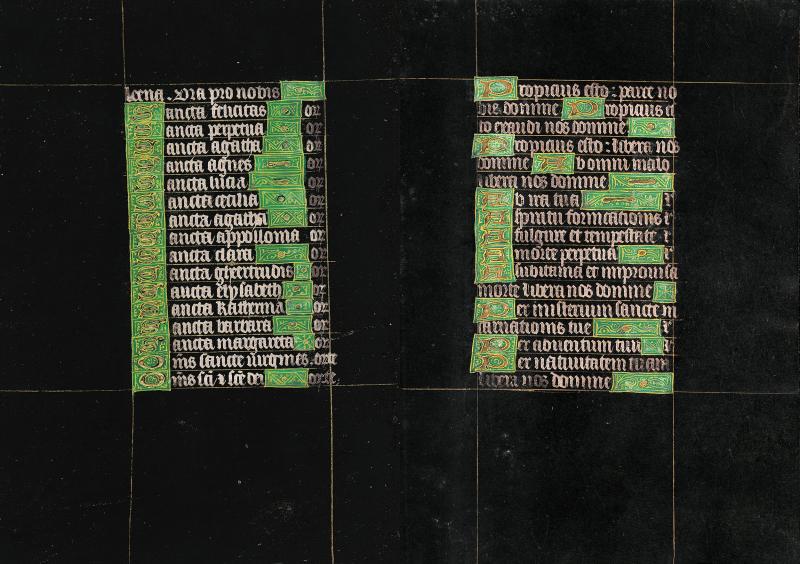 lena. Ora pro nobis
Sancta felicitas or
Sancta perpetua or
Sancta agatha or
Sancta agnes or
Sancta lucia or
Sancta cecilia or
Sancta agatha or
Sancta appollonia or
Sancta clara or
Sancta gheertrudis or
Sancta elysabeth or
Sancta katherina or
Sancta barbara or
Sancta margareta or
Oms sancte virgines. orate
Oms sci & sce dei orate.
Propicius esto: parce no
bis domine Propicius es
to exaudi nos domine
Propicius esto: libera nos
domine Ab omni malo
libera nos domine
Ab ira tua l
A spiritu fornicationis l
A fulgure et tempestate l
A morte perpetua l
A subitania et improuisa
morte libera nos domine
Per misterium sancte in
carnationis tue l
Per aduentum tuum l
Per natiuitatem tuam
libera nos domine